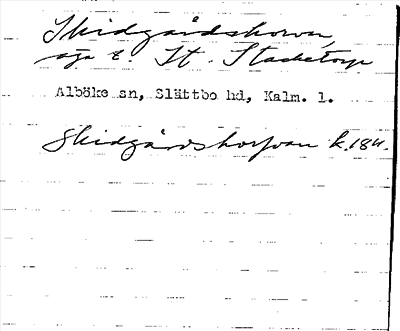 Skidgårdshorvan,
äga t. St. Stacketorp
Alböke sn, Slättbo hd, Kalm. l.
Skidgårdshorfvan k.1811.